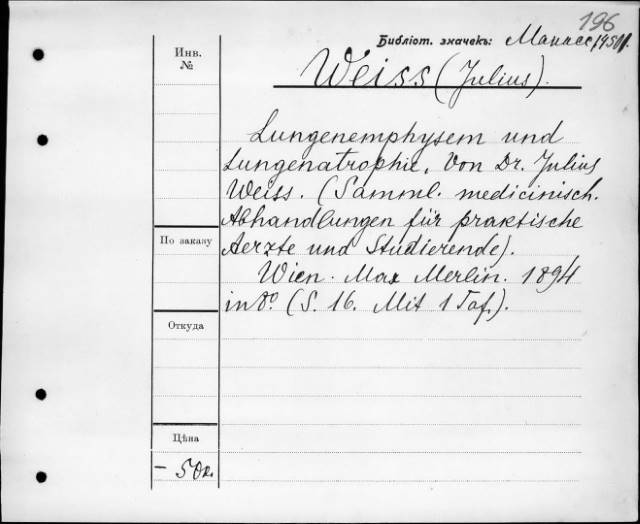 196
Библіот. значекъ:
Инв.
№
Weiss (Julius).
Lungenemphysem und
Lungenatrophie, Von Dr. Julius
Weiss. (Samml. medicinisch.
Abhandlungen für praktische
По заказу
Aerzte und Studierende).
Wien. Max Merlin. 1894
in 8º. (S. 16. Mit 1 Taf.).
Откуда
Цѣна
– 50к.